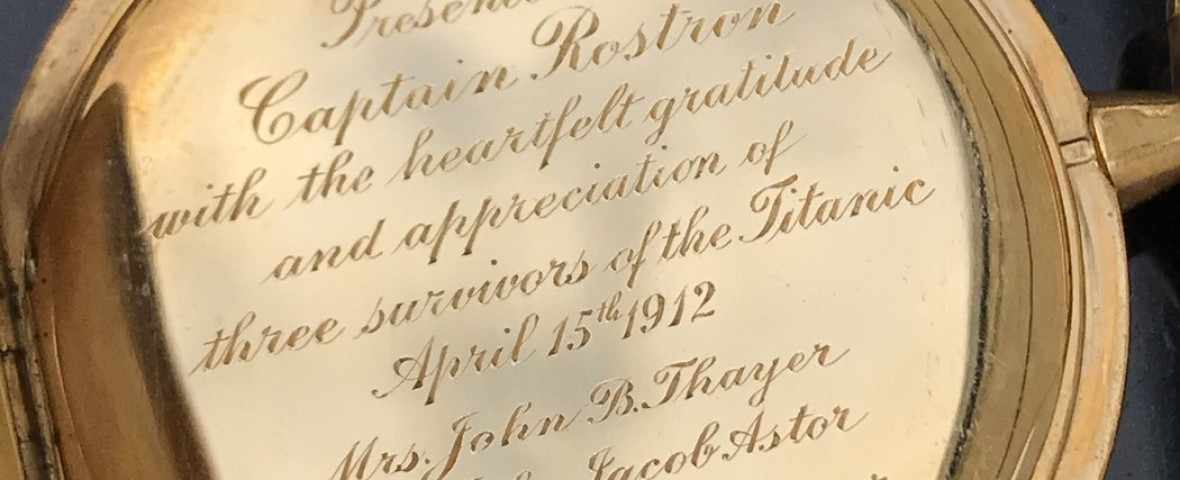 Captain Rostron
with the heartfelt gratitude
and appreciation of
three survivors of the Titanic
April 15th 1912
Mrs. John B. Thayer
Jacob Astor